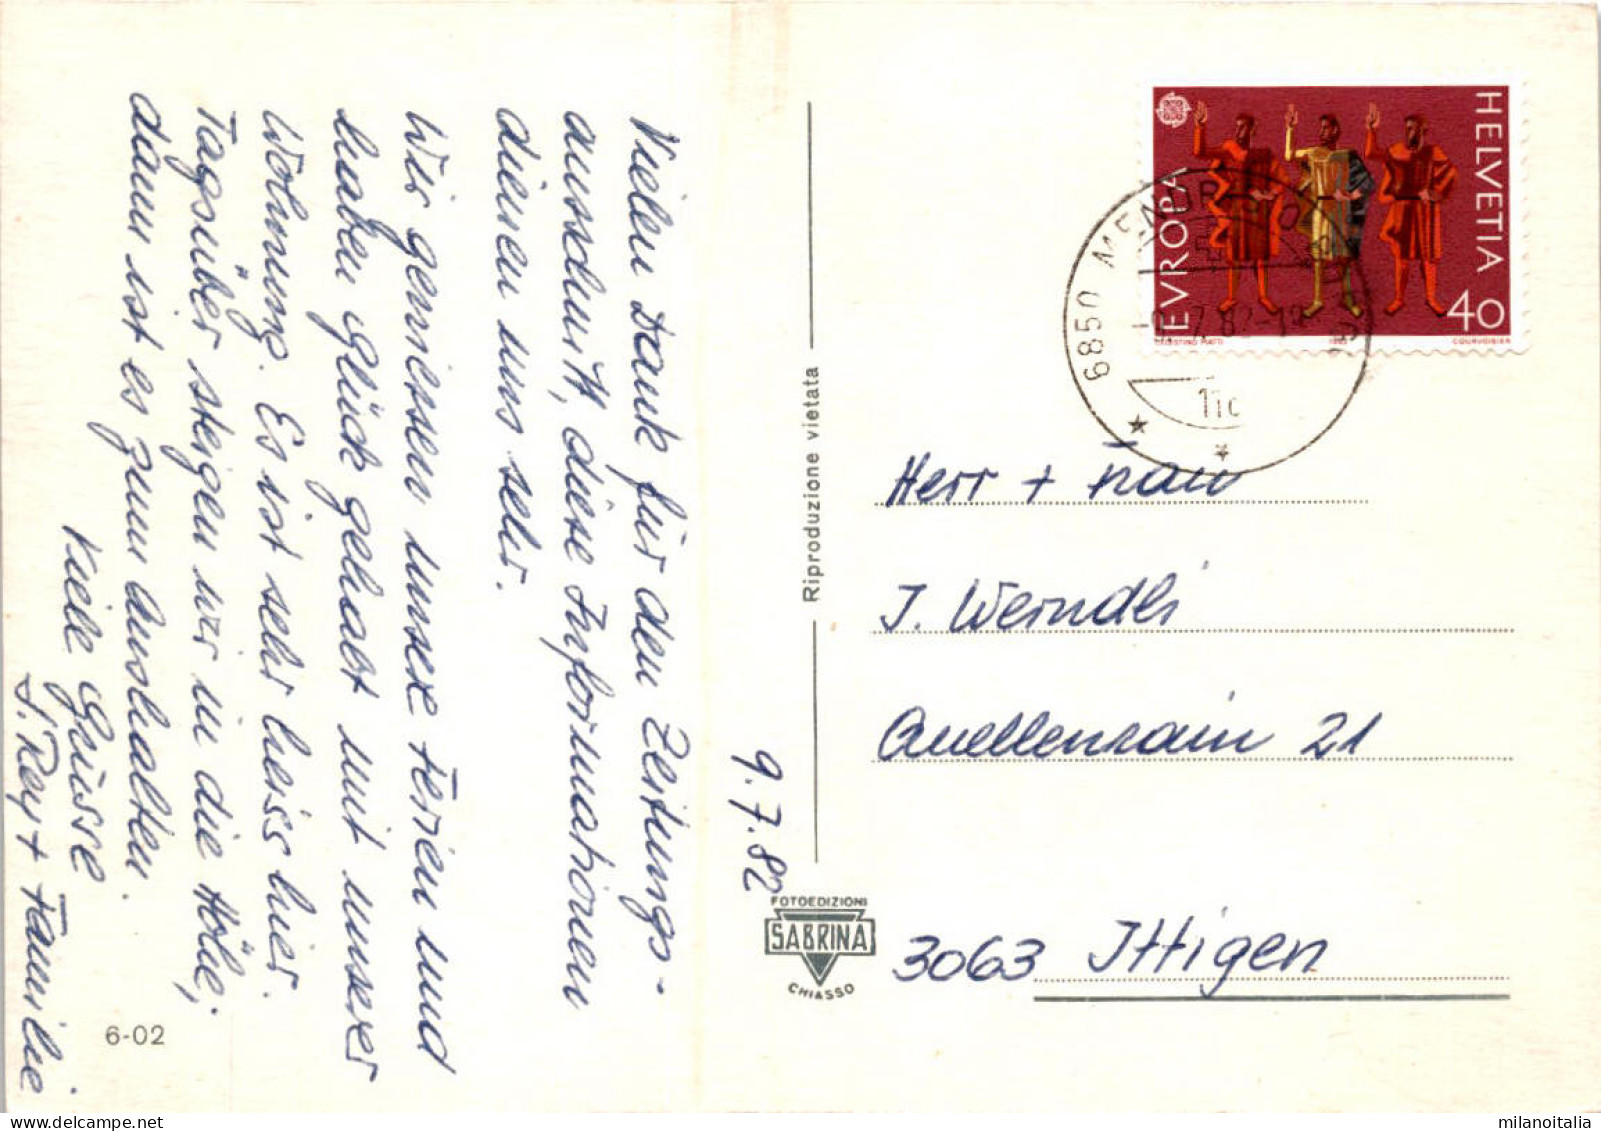 9.7.82
Vielen Dank für den Zeitungs-
ausschnitt, diese Informationen
dienen uns sehr.
Wir geniessen unsere Ferien und
haben Glück gehabt mit unserer
Wohnung. Es ist sehr heiss hier.
Tagsüber steigen wir in die Höhe,
dann ist es zum Aushalten.
Viele Grüsse
J. Rey + Familie
6-02
Riproduzione vietata
FOTOEDIZIONI
SABRINA
CHIASSO
HELVETIA
EVROPA
40
CELESTINO PIATTI 1982 COURVOISIER
6850 MENDRISIO
11c
Herr + Frau
J. Werndli
Quellenrain 21
3063 Ittigen
milanoitalia